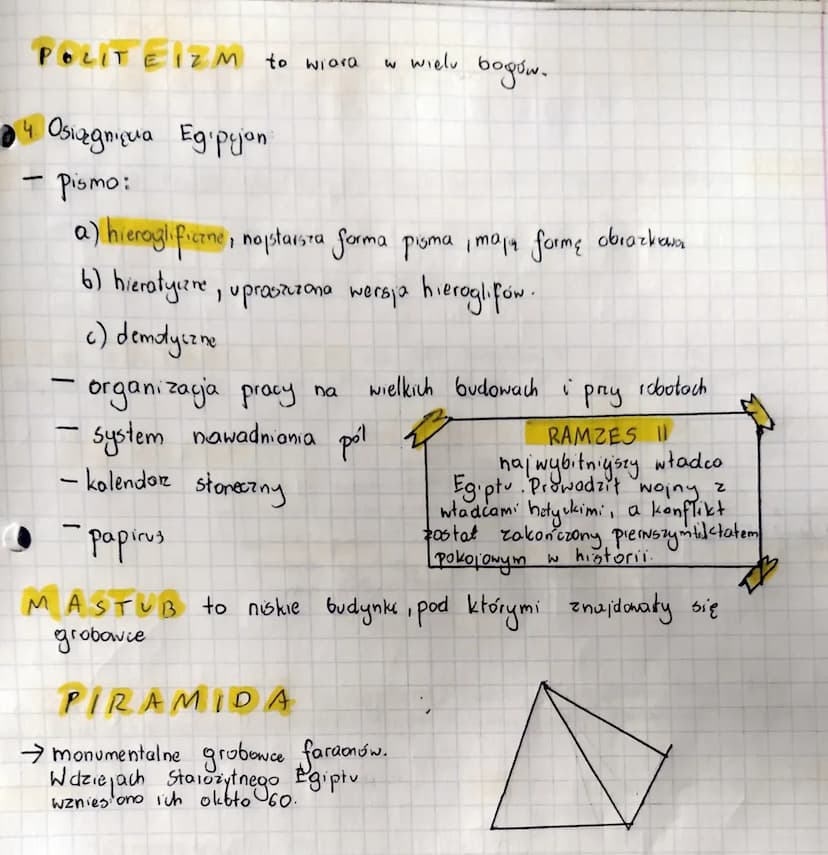 POLITEIZM to wiara w wielu bogów.
4. Osiągnięcia Egipcjan
- pismo:
a) hieroglificzne, najstarsza forma pisma, mają formę obrazkowa
b) hieratyczne, uproszczona wersja hieroglifów.
c) demotyczne
- organizacja pracy na wielkich budowach i przy robotach
- system nawadniania pól
- kalendarz słoneczny
- papirus
RAMZES II
najwybitniejszy władca
Egiptu. Prowadził wojny z
władcami hetyckimi, a konflikt
został zakończony pierwszym traktatem
pokojowym w historii.
MASTUB to niskie budynki, pod którymi znajdowały się
grobowce
PIRAMIDA
→ monumentalne grobowce faraonów.
W dziejach Starożytnego Egiptu
wzniesiono ich około 60.